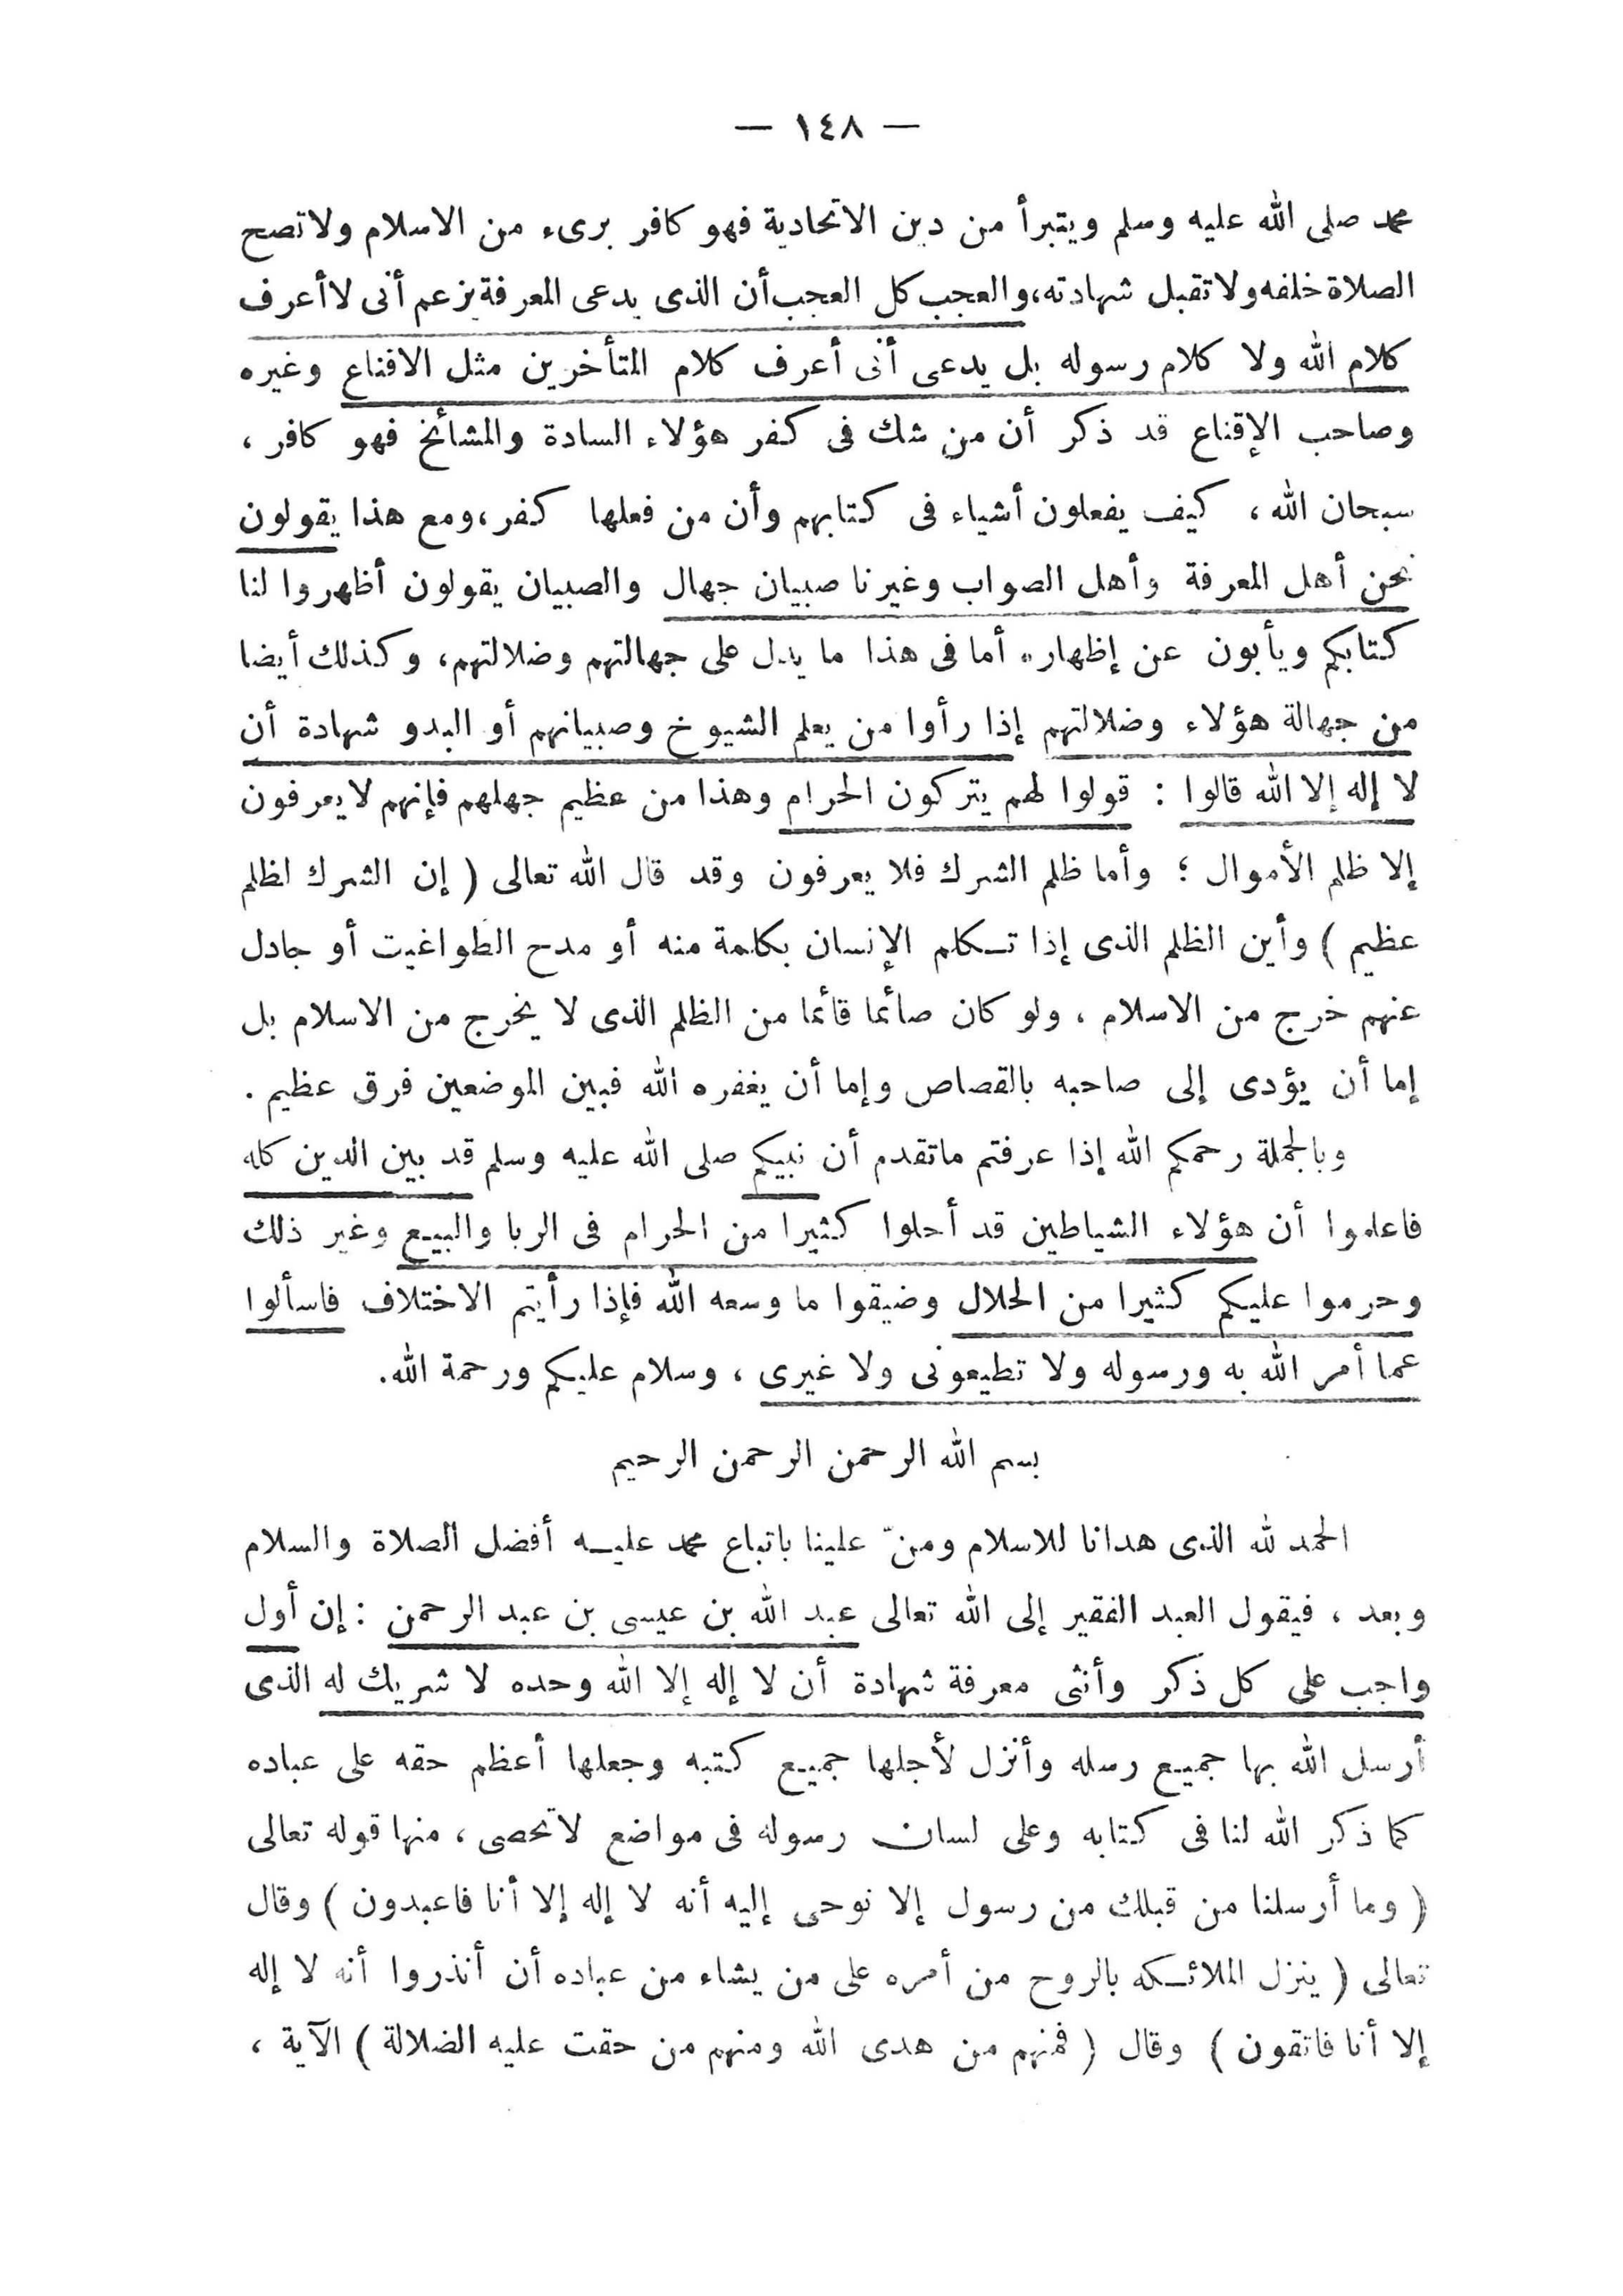 — ١٤٨ —
محمد صلى الله عليه وسلم ويتبرأ من دين الاتحادية فهو كافر برىء من الاسلام ولا تصح
الصلاة خلفه ولا تقبل شهادته، والعجب كل العجب أن الذى يدعى المعرفة يزعم أنى لا أعرف
كلام الله ولا كلام رسوله بل يدعى أنى أعرف كلام المتأخرين مثل الاقناع وغيره
وصاحب الإقناع قد ذكر أن من شك فى كفر هؤلاء السادة والمشائخ فهو كافر ،
سبحان الله ، كيف يفعلون أشياء فى كتابهم وأن من فعلها كفر، ومع هذا يقولون
نحن أهل المعرفة وأهل الصواب وغيرنا صبيان جهال والصبيان يقولون أظهروا لنا
كتابكم ويأبون عن إظهاره أما فى هذا ما يدل على جهالتهم وضلالتهم، وكذلك أيضا
من جهالة هؤلاء وضلالتهم إذا رأوا من يعلم الشيوخ وصبيانهم أو البدو شهادة أن
لا إله إلا الله قالوا : قولوا لهم يتركون الحرام وهذا من عظيم جهلهم فإنهم لا يعرفون
إلا ظلم الأموال ؛ وأما ظلم الشرك فلا يعرفون وقد قال الله تعالى ( إن الشرك لظلم
عظيم ) وأين الظلم الذى إذا تكلم الإنسان بكلمة منه أو مدح الطواغيت أو جادل
عنهم خرج من الاسلام ، ولو كان صائما قائما من الظلم الذى لا يخرج من الاسلام بل
إما أن يؤدى إلى صاحبه بالقصاص وإما أن يغفره الله فبين الموضعين فرق عظيم .
وبالجملة رحمكم الله إذا عرفتم ماتقدم أن نبيكم صلى الله عليه وسلم قد بين الدين كله
فاعلموا أن هؤلاء الشياطين قد أحلوا كثيرا من الحرام فى الربا والبيع وغير ذلك
وحرموا عليكم كثيرا من الحلال وضيقوا ما وسعه الله فإذا رأيتم الاختلاف فاسألوا
عما أمر الله به ورسوله ولا تطيعونى ولا غيرى ، وسلام عليكم ورحمة الله.
بسم الله الرحمن الرحمن الرحيم
الحمد لله الذى هدانا للاسلام ومنّ علينا باتباع محمد عليه أفضل الصلاة والسلام
وبعد ، فيقول العبد الفقير إلى الله تعالى عبد الله بن عيسى بن عبد الرحمن : إن أول
واجب على كل ذكر وأنثى معرفة شهادة أن لا إله إلا الله وحده لا شريك له الذى
أرسل الله بها جميع رسله وأنزل لأجلها جميع كتبه وجعلها أعظم حقه على عباده
كما ذكر الله لنا فى كتابه وعلى لسان رسوله فى مواضع لا تحصى ، منها قوله تعالى
( وما أرسلنا من قبلك من رسول إلا نوحى إليه أنه لا إله إلا أنا فاعبدون ) وقال
تعالى ( ينزل الملائكه بالروح من أمره على من يشاء من عباده أن أنذروا أنه لا إله
إلا أنا فاتقون ) وقال ( فمنهم من هدى الله ومنهم من حقت عليه الضلالة ) الآية ،